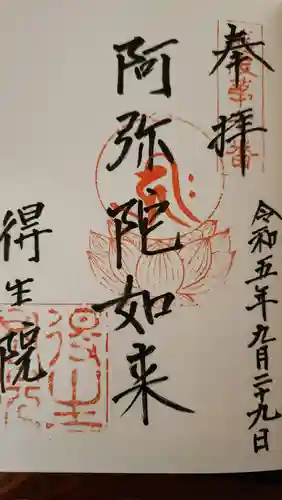 奉拝
令和五年九月二十九日
阿弥陀如来
得生院
得生院